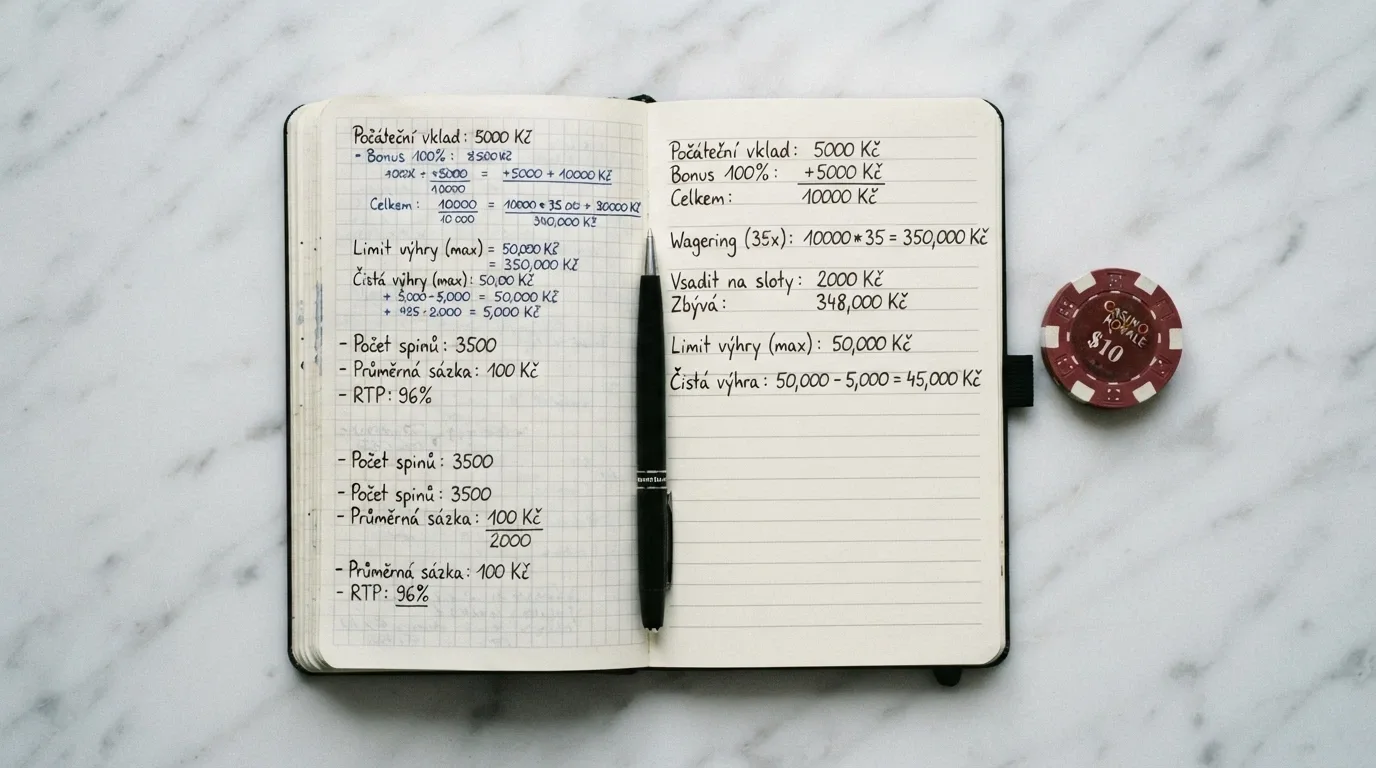 Počáteční vklad: 5000 Kč
- Bonus 100%: 8500 Kč
+5000 = +5000 + 10000 Kč
10000
Celkem: 10000 = 10000 * 35 00 + 30000 Kč
10 000 340,000 Kč
Limit výhry (max) = 50,000 Kč
= 350,000 Kč
Čistá výhry (max): 50,00 Kč
+ 5,000-5,000 = 50,000 Kč
+ 925-2.000 = 5,000 Kč
- Počet spinů: 3500
- Průměrná sázka: 100 Kč
- RTP: 96%
- Počet spinů: 3500
- Počet spinů: 3500
- Průměrná sázka: 100 Kč
2000
- Průměrná sázka: 100 Kč
- RTP: 96%
Počáteční vklad: 5000 Kč
Bonus 100%: +5000 Kč
Celkem: 10000 Kč
Wagering (35x): 10000*35 = 350,000 Kč
Vsadit na sloty: 2000 Kč
Zbývá: 348,000 Kč
Limit výhry (max): 50,000 Kč
Čistá výhra: 50,000 - 5,000 = 45,000 Kč
CASINO
ROYALE
$10